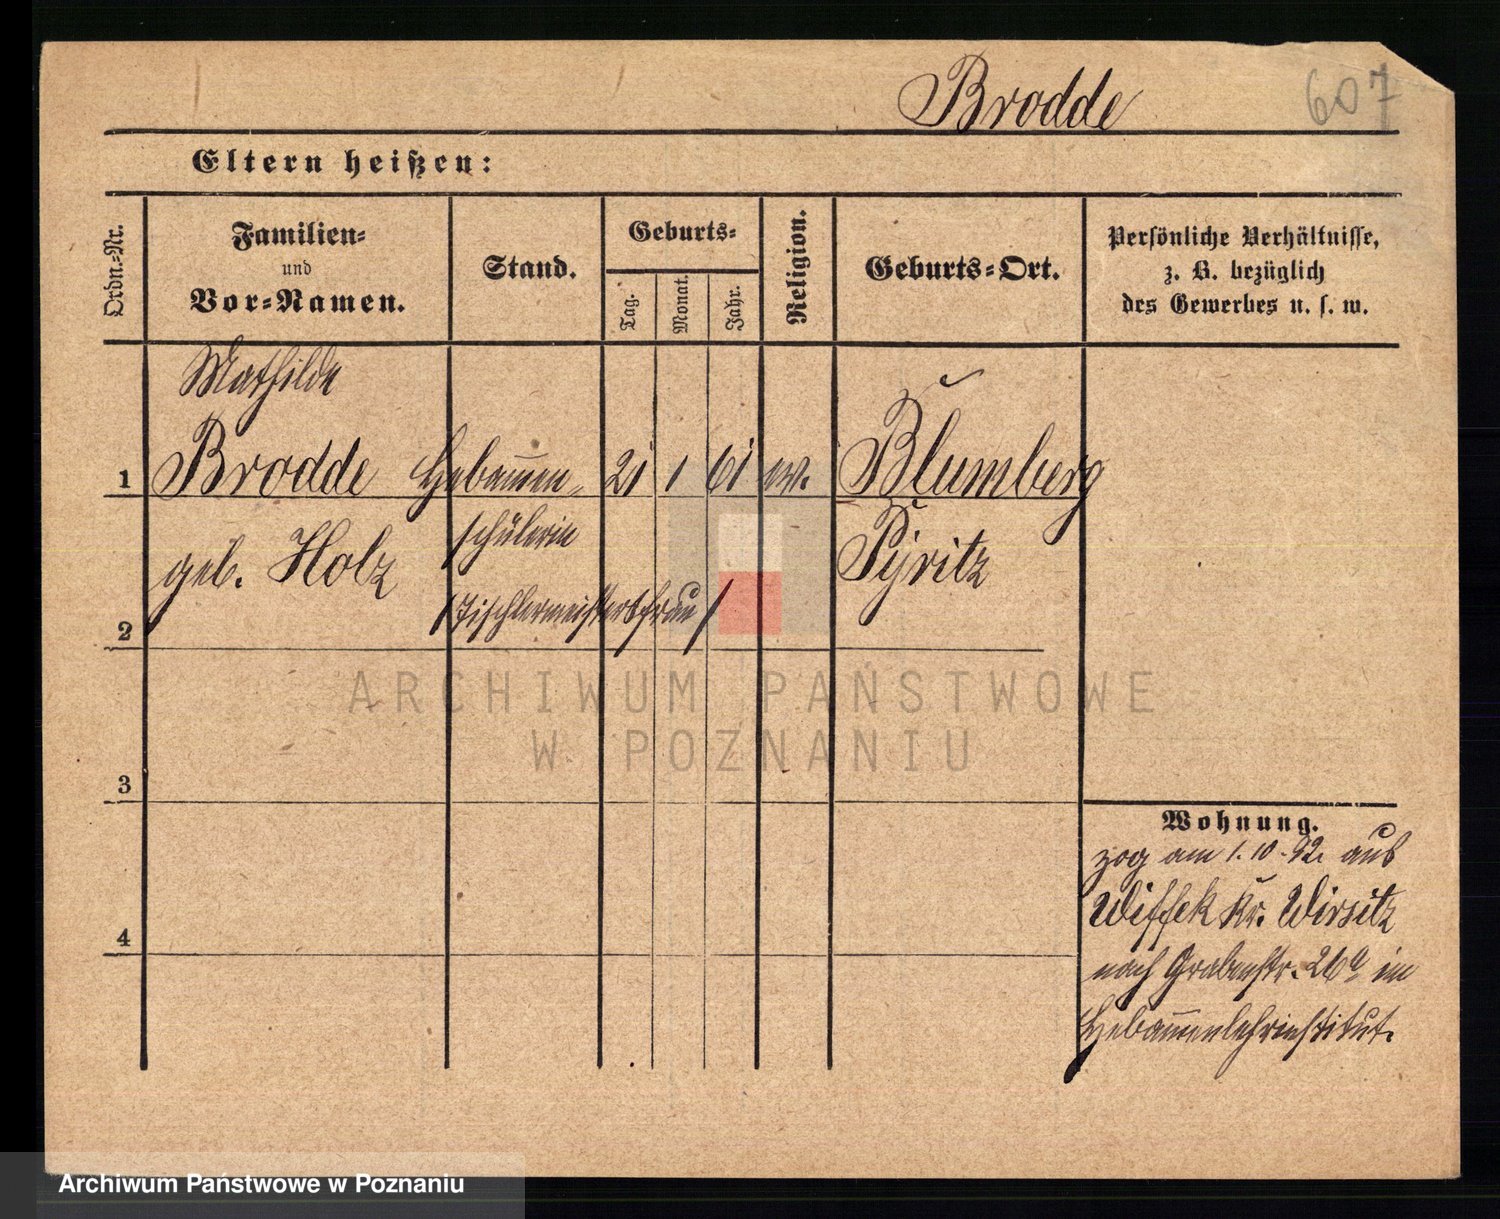 Brodde
607
Eltern heißen:
Ordn.-Nr.
Familien-
und
Vor-Namen.
Stand.
Geburts-
Tag.
Monat.
Jahr.
Religion.
Geburts-Ort.
Persönliche Verhältnisse,
z. B. bezüglich
des Gewerbes u. s. w.
Mathilde
1 Brodde Hebam̅en- 21 1 61 ev. Blumberg
geb. Holz schülerin Pyritz
2 /Tischlermeistersfrau/
3
4
Wohnung.
zog am 1.10.92. aus
Wissek Kr. Wirsitz
nach Grabenstr. 26a im
Hebam̅enlehrinstitut.
ARCHIWUM PAŃSTWOWE
W POZNANIU
Archiwum Państwowe w Poznaniu